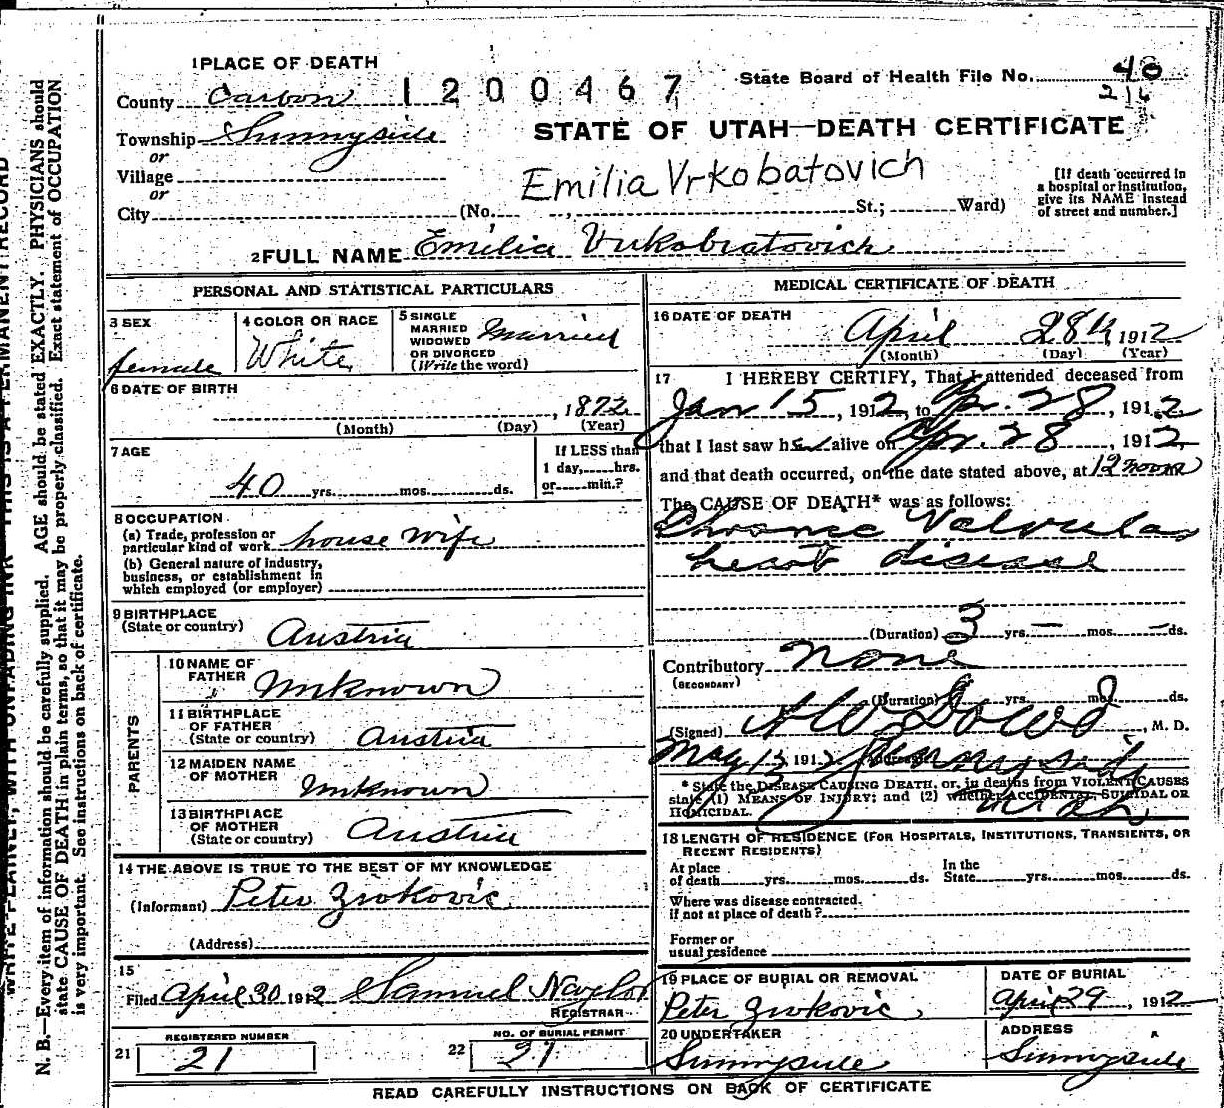 1 PLACE OF DEATH
County Carbon 1200467
State Board of Health File No. 40
216
Township Sunnyside
STATE OF UTAH—DEATH CERTIFICATE
or
Village
Emilia Vrkobatovich
or
City (No. , St.; Ward)
[If death occurred in a hospital or institution, give its NAME instead of street and number.]
2 FULL NAME Emilia Vukobratovich
PERSONAL AND STATISTICAL PARTICULARS
3 SEX
female
4 COLOR OR RACE
White
5 SINGLE
MARRIED
WIDOWED
OR DIVORCED
(Write the word)
Married
6 DATE OF BIRTH
, 1872
(Month) (Day) (Year)
7 AGE
40 yrs. mos. ds.
If LESS than
1 day, hrs.
or min.?
8 OCCUPATION
(a) Trade, profession or
particular kind of work house wife
(b) General nature of industry,
business, or establishment in
which employed (or employer)
9 BIRTHPLACE
(State or country) Austria
PARENTS
10 NAME OF
FATHER Unknown
11 BIRTHPLACE
OF FATHER
(State or country) Austria
12 MAIDEN NAME
OF MOTHER Unknown
13 BIRTHPLACE
OF MOTHER
(State or country) Austria
14 THE ABOVE IS TRUE TO THE BEST OF MY KNOWLEDGE
(Informant) Peter Zrokovic
(Address)
15
Filed April 30 1912 Samuel Naylor
REGISTRAR
REGISTERED NUMBER
21 21
NO. OF BURIAL PERMIT
22 21
MEDICAL CERTIFICATE OF DEATH
16 DATE OF DEATH
April 28th, 1912
(Month) (Day) (Year)
17 I HEREBY CERTIFY, That I attended deceased from
Jan 15, 1912, to Apr. 28, 1912
that I last saw her alive on Apr. 28, 1912,
and that death occurred, on the date stated above, at 12 noon
The CAUSE OF DEATH* was as follows:
Chronic Valvular
heart disease
(Duration) 3 yrs. — mos. — ds.
Contributory none
(SECONDARY)
(Duration) yrs. mos. ds.
(Signed) A W Dowd, M. D.
May 13, 1912 (Address) Sunnyside
Utah
* State the DISEASE CAUSING DEATH, or, in deaths from VIOLENT CAUSES
state (1) MEANS OF INJURY; and (2) whether ACCIDENTAL, SUICIDAL OR
HOMICIDAL.
18 LENGTH OF RESIDENCE (FOR HOSPITALS, INSTITUTIONS, TRANSIENTS, OR
RECENT RESIDENTS)
At place
of death yrs. mos. ds.
In the
State yrs. mos. ds.
Where was disease contracted,
if not at place of death?
Former or
usual residence
19 PLACE OF BURIAL OR REMOVAL
Peter Zrokovic
DATE OF BURIAL
April 29, 1912
20 UNDERTAKER
Sunnyside
ADDRESS
Sunnyside
READ CAREFULLY INSTRUCTIONS ON BACK OF CERTIFICATE
WRITE PLAINLY, WITH UNFADING INK—THIS IS A PERMANENT RECORD
N. B.—Every item of information should be carefully supplied. AGE should be stated EXACTLY. PHYSICIANS should
state CAUSE OF DEATH in plain terms, so that it may be properly classified. Exact statement of OCCUPATION
is very important. See instructions on back of certificate.